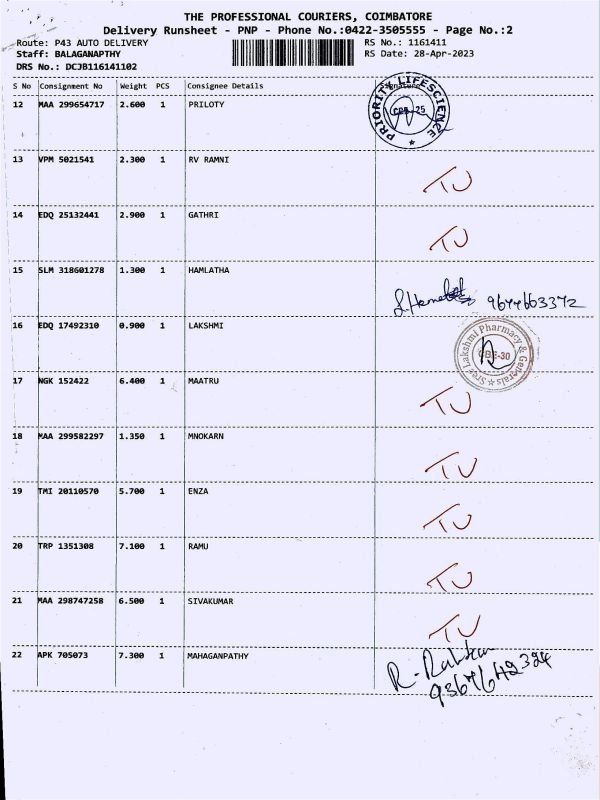 THE PROFESSIONAL COURIERS, COIMBATORE
Delivery Runsheet - PNP - Phone No.:0422-3505555 - Page No.:2
Route: P43 AUTO DELIVERY RS No.: 1161411
Staff: BALAGANAPTHY RS Date: 28-Apr-2023
DRS No.: DCJB116141102
S No Consignment No Weight PCS Consignee Details Signature
12 MAA 299654717 2.600 1 PRILOTY
PRIORITY LIFESCIENCE
CBE-25
13 VPM 5021541 2.300 1 RV RAMNI
TU
14 EDQ 25132441 2.900 1 GATHRI
TU
15 SLM 318601278 1.300 1 HAMLATHA
9677663372
16 EDQ 17492310 0.900 1 LAKSHMI
Sree Lakshmi Pharmacy & Generals
CBE-30
17 NGK 152422 6.400 1 MAATRU
TU
18 MAA 299582297 1.350 1 MNOKARN
TU
19 TMI 20110570 5.700 1 ENZA
TU
20 TRP 1351308 7.100 1 RAMU
TU
21 MAA 298747258 6.500 1 SIVAKUMAR
TU
22 APK 705073 7.300 1 MAHAGANPATHY